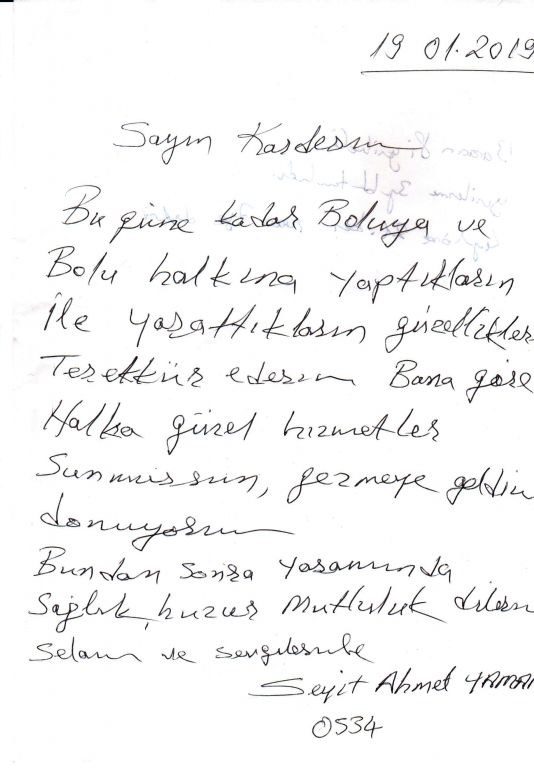 19 01.2019
Sayın Kardeşım
Bu güne kadar Boluya ve
Bolu halkına yaptıkların
ile yarattıkların güzellikler
Teşekkür ederım Bana göre
Halka güzel hızmetler
Sunmuşsun, gezmeye geldim
donuyorum
Bundan sonra yaşamında
Sağlık, huzur Mutluluk dilerım
Selam ve sevgılerımle
Seyit Ahmet YAMAN
0534